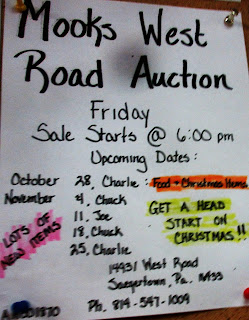 Mooks West
Road Auction
Friday
Sale Starts @ 6:00 pm
Upcoming Dates:
October 28, Charlie: Food + Christmas Items
November 4, Chuck
11, Joe
18, Chuck
25, Charlie
LOTS OF
NEW ITEMS
GET A HEAD
START ON
CHRISTMAS!!
14931 West Road
Saegertown, Pa.
Ph. 814-547-1009